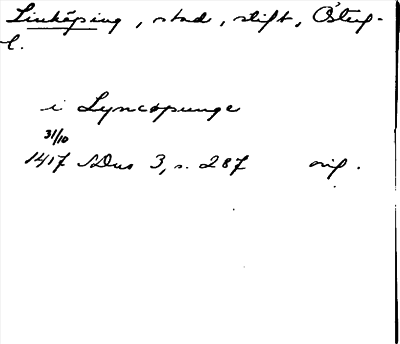 Linköping, stad, stift, Österg-
l.
i Lyncopunge
31/10
1417 SDns 3, s. 287 orig.